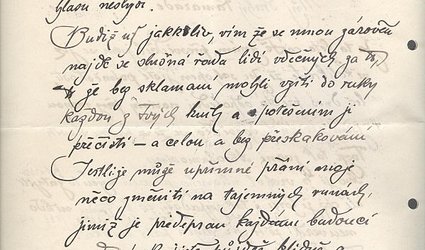 hlavu neslyší.
Budiž už jakkoliv, vím že se mnou zároveň
najde se slušná řada lidí vděčných za to,
že bez sklamání mohli vzíti do ruky
každou z Tvých knih a s potěšením ji
přečísti – a celou a bez přeskakování
Jestliže může upřímné přání moje
něco změniti na tajemných runach,
jimiž je předepsán každému budoucí